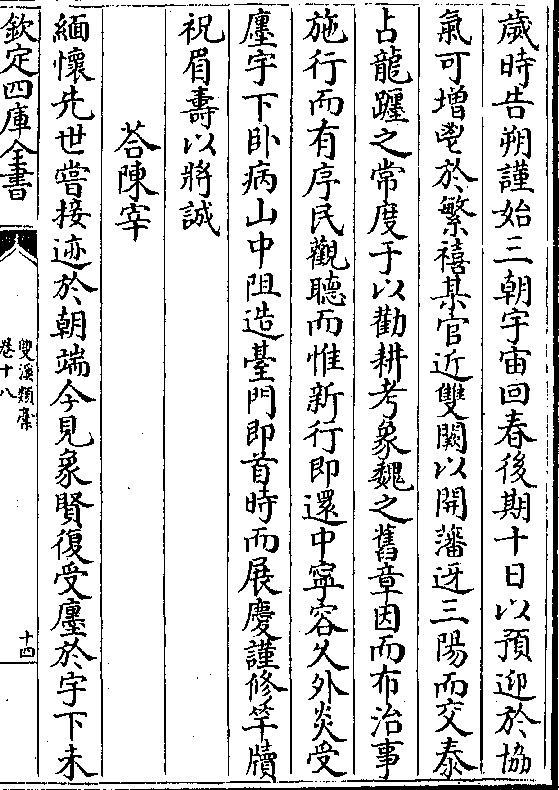 歲時告朔謹始三朝宇宙回春後期十日以預迎於協
氣可增鬯於繁禧某官近雙闕以開藩迓三陽而交泰
占龍躔之常度于以勸耕考象魏之舊章因而布治事
施行而有序民觀聽而惟新行即還中寧容久外炎受
廛宇下卧病山中阻造臺門即首時而展慶謹修竿牘
祝眉壽以將誠
荅陳宰
緬懷先世嘗接迹於朝端今見象賢復受廛於宇下未
欽定四庫全書
雙溪類稾
卷十八
十四